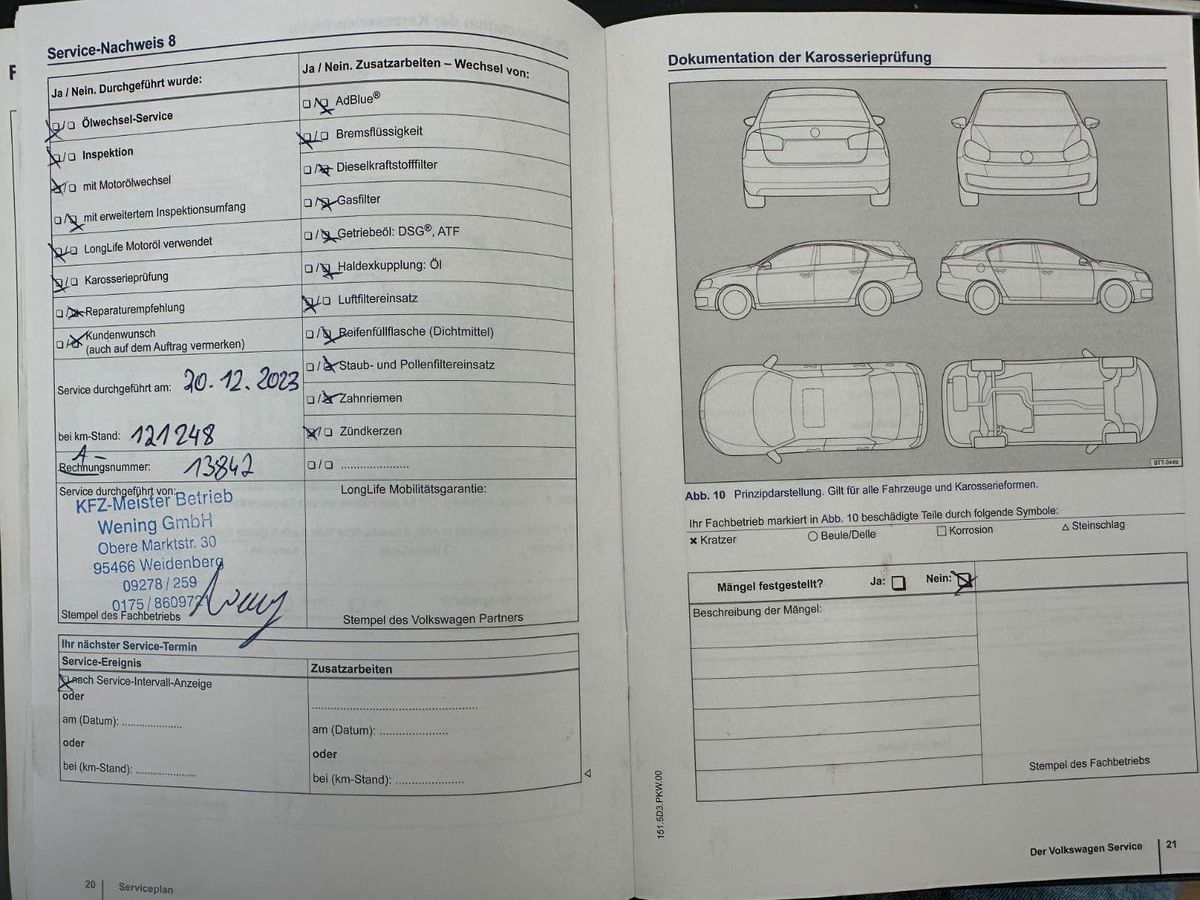 Service-Nachweis 8
Ja / Nein. Durchgeführt wurde:
☒/☐ Ölwechsel-Service
☒/☐ Inspektion
☒/☐ mit Motorölwechsel
☐/☒ mit erweitertem Inspektionsumfang
☒/☐ LongLife Motoröl verwendet
☒/☐ Karosserieprüfung
☐/☒ Reparaturempfehlung
☐/☒ Kundenwunsch
(auch auf dem Auftrag vermerken)
Service durchgeführt am: 20.12.2023
bei km-Stand: 121248
A-
Rechnungsnummer: 13842
Service durchgeführt von:
KFZ-Meister Betrieb
Wening GmbH
Obere Marktstr. 30
95466 Weidenberg
09278 / 259
0175 / 860972
Stempel des Fachbetriebs
Ja / Nein. Zusatzarbeiten – Wechsel von:
☐/☒ AdBlue®
☒/☐ Bremsflüssigkeit
☐/☒ Dieselkraftstofffilter
☐/☒ Gasfilter
☐/☒ Getriebeöl: DSG®, ATF
☐/☒ Haldexkupplung: Öl
☒/☐ Luftfiltereinsatz
☐/☒ Reifenfüllflasche (Dichtmittel)
☐/☒ Staub- und Pollenfiltereinsatz
☐/☒ Zahnriemen
☒/☐ Zündkerzen
☐/☐ .....................
LongLife Mobilitätsgarantie:
Stempel des Volkswagen Partners
Ihr nächster Service-Termin
Service-Ereignis
☒ nach Service-Intervall-Anzeige
oder
am (Datum): ..................
oder
bei (km-Stand): ..................
Zusatzarbeiten
..................................................
am (Datum): .....................
oder
bei (km-Stand): .....................
20 Serviceplan
Dokumentation der Karosserieprüfung
BTT-0449
Abb. 10 Prinzipdarstellung. Gilt für alle Fahrzeuge und Karosserieformen.
Ihr Fachbetrieb markiert in Abb. 10 beschädigte Teile durch folgende Symbole:
✖ Kratzer ○ Beule/Delle □ Korrosion △ Steinschlag
Mängel festgestellt? Ja: ☐ Nein: ☒
Beschreibung der Mängel:
Stempel des Fachbetriebs
151.5D3.PKW.00
Der Volkswagen Service 21